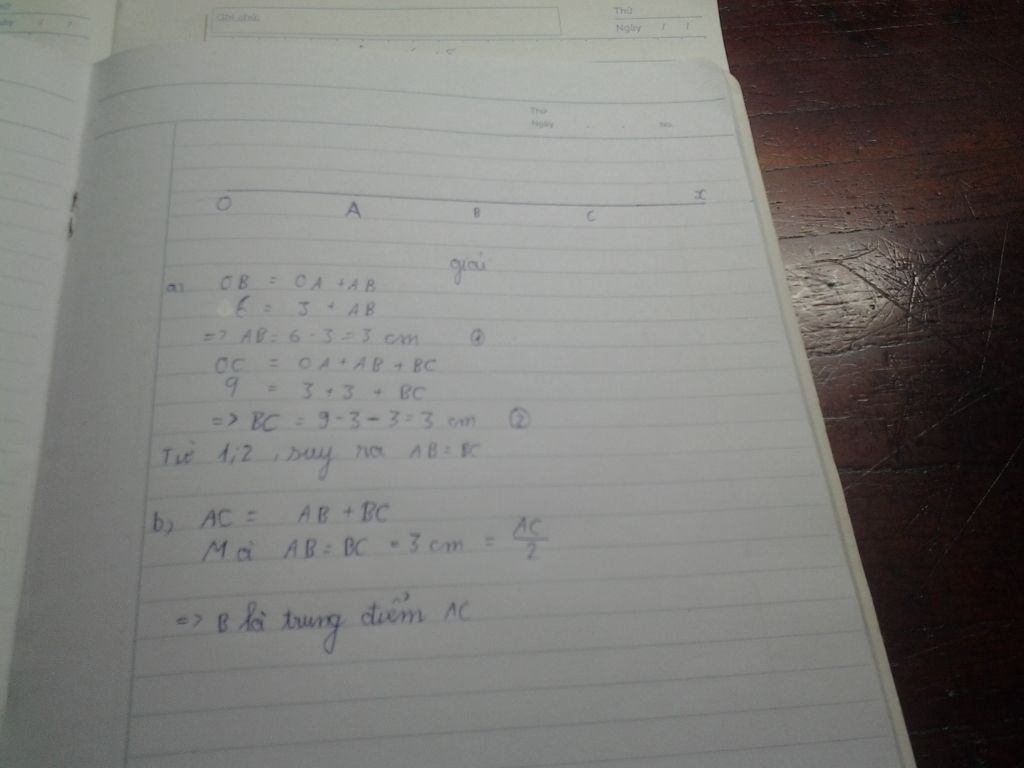 Ghi chú:
Thứ
Ngày / /
Thứ
Ngày . . No.
O A B C x
giải
a) OB = OA + AB
6 = 3 + AB
=> AB = 6 - 3 = 3 cm ①
OC = OA + AB + BC
9 = 3 + 3 + BC
=> BC = 9 - 3 - 3 = 3 cm ②
Từ 1;2, suy ra AB = BC
b, AC = AB + BC
Mà AB = BC = 3 cm = AC/2
=> B là trung điểm AC